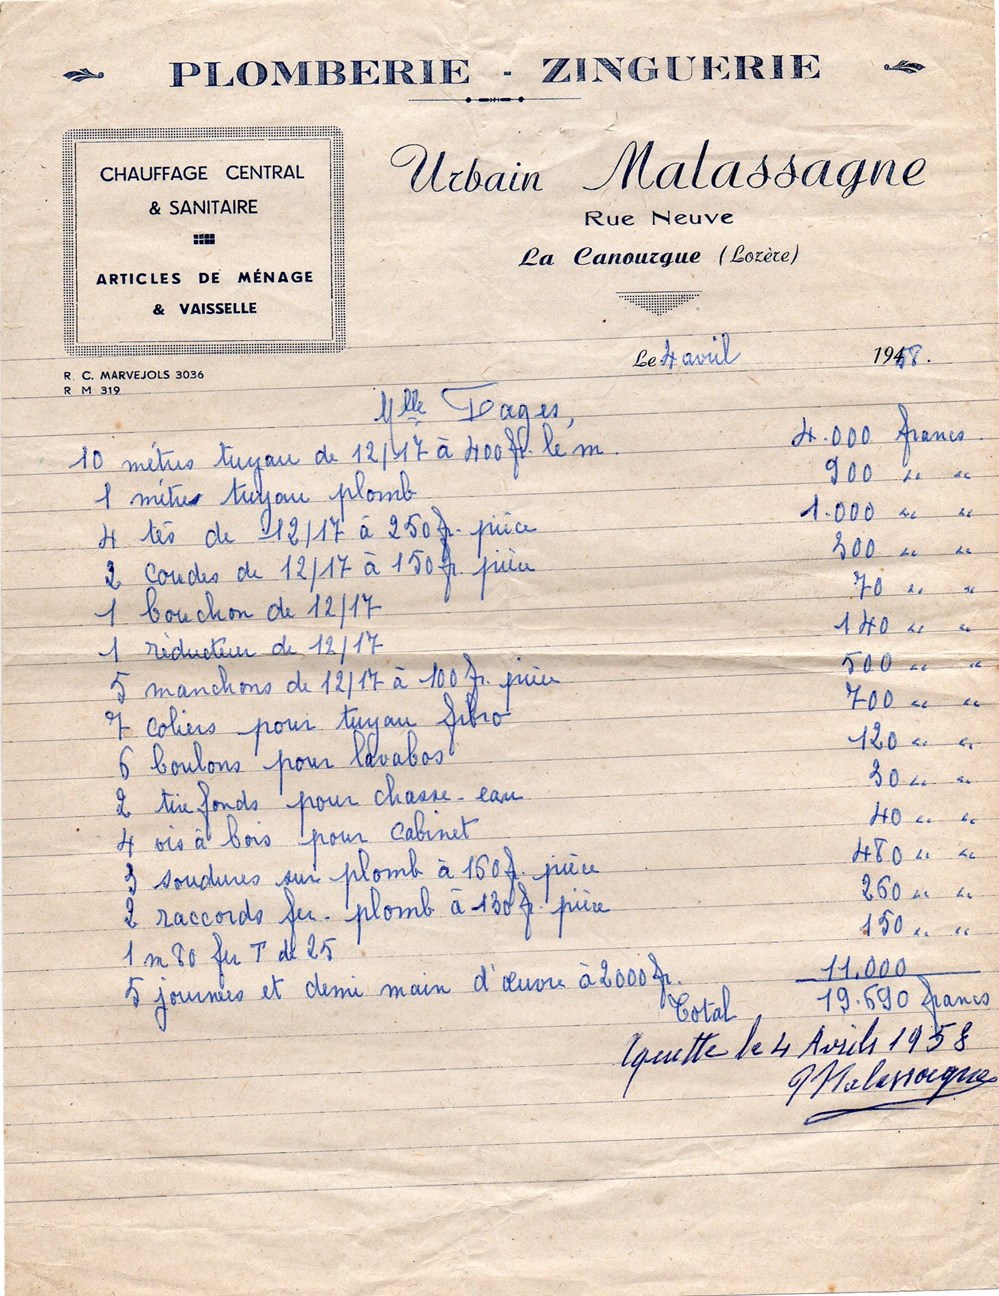 PLOMBERIE - ZINGUERIE
CHAUFFAGE CENTRAL
& SANITAIRE
ARTICLES DE MÉNAGE
& VAISSELLE
R. C. MARVEJOLS 3036
R M 319
Urbain Malassagne
Rue Neuve
La Canourgue (Lozère)
Le 4 avril 1958.
Mlle Dages,
10 mètres tuyau de 12/17 à 400 fr. le m. 4.000 francs
1 mètres tuyau plomb 900 " "
4 tés de 12/17 à 250 fr. pièce 1.000 " "
2 coudes de 12/17 à 150 fr. pièce 300 " "
1 bouchon de 12/17 70 " "
1 réducteur de 12/17 140 " "
5 manchons de 12/17 à 100 fr. pièce 500 " "
7 coliers pour tuyau fibro 700 " "
6 boulons pour lavabos 120 " "
2 tire fonds pour chasse-eau 30 " "
4 vis à bois pour cabinet 40 " "
3 soudures sur plomb à 160 fr. pièce 480 " "
2 raccords fer-plomb à 130 fr. pièce 260 " "
1 m 80 fer T de 25 150 " "
5 journées et demi main d'œuvre à 2000 fr. 11.000
Total 19.690 francs
Aquitte le 4 Avrils 1958
Malassagne